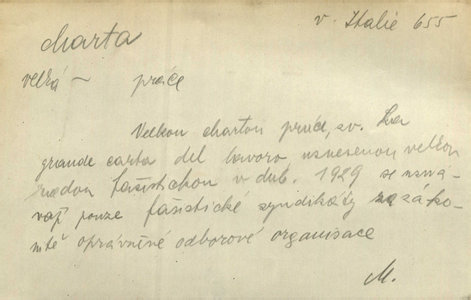 charta
v Italie 655
velká ~ práce
Velkou chartou práce, zv. La
grande carta del lavoro usnesenou velkou
radou fašistickou v dub. 1929 se uzná-
vají pouze fašistické syndikáty za záko-
nitě oprávněné odborové organisace
M.